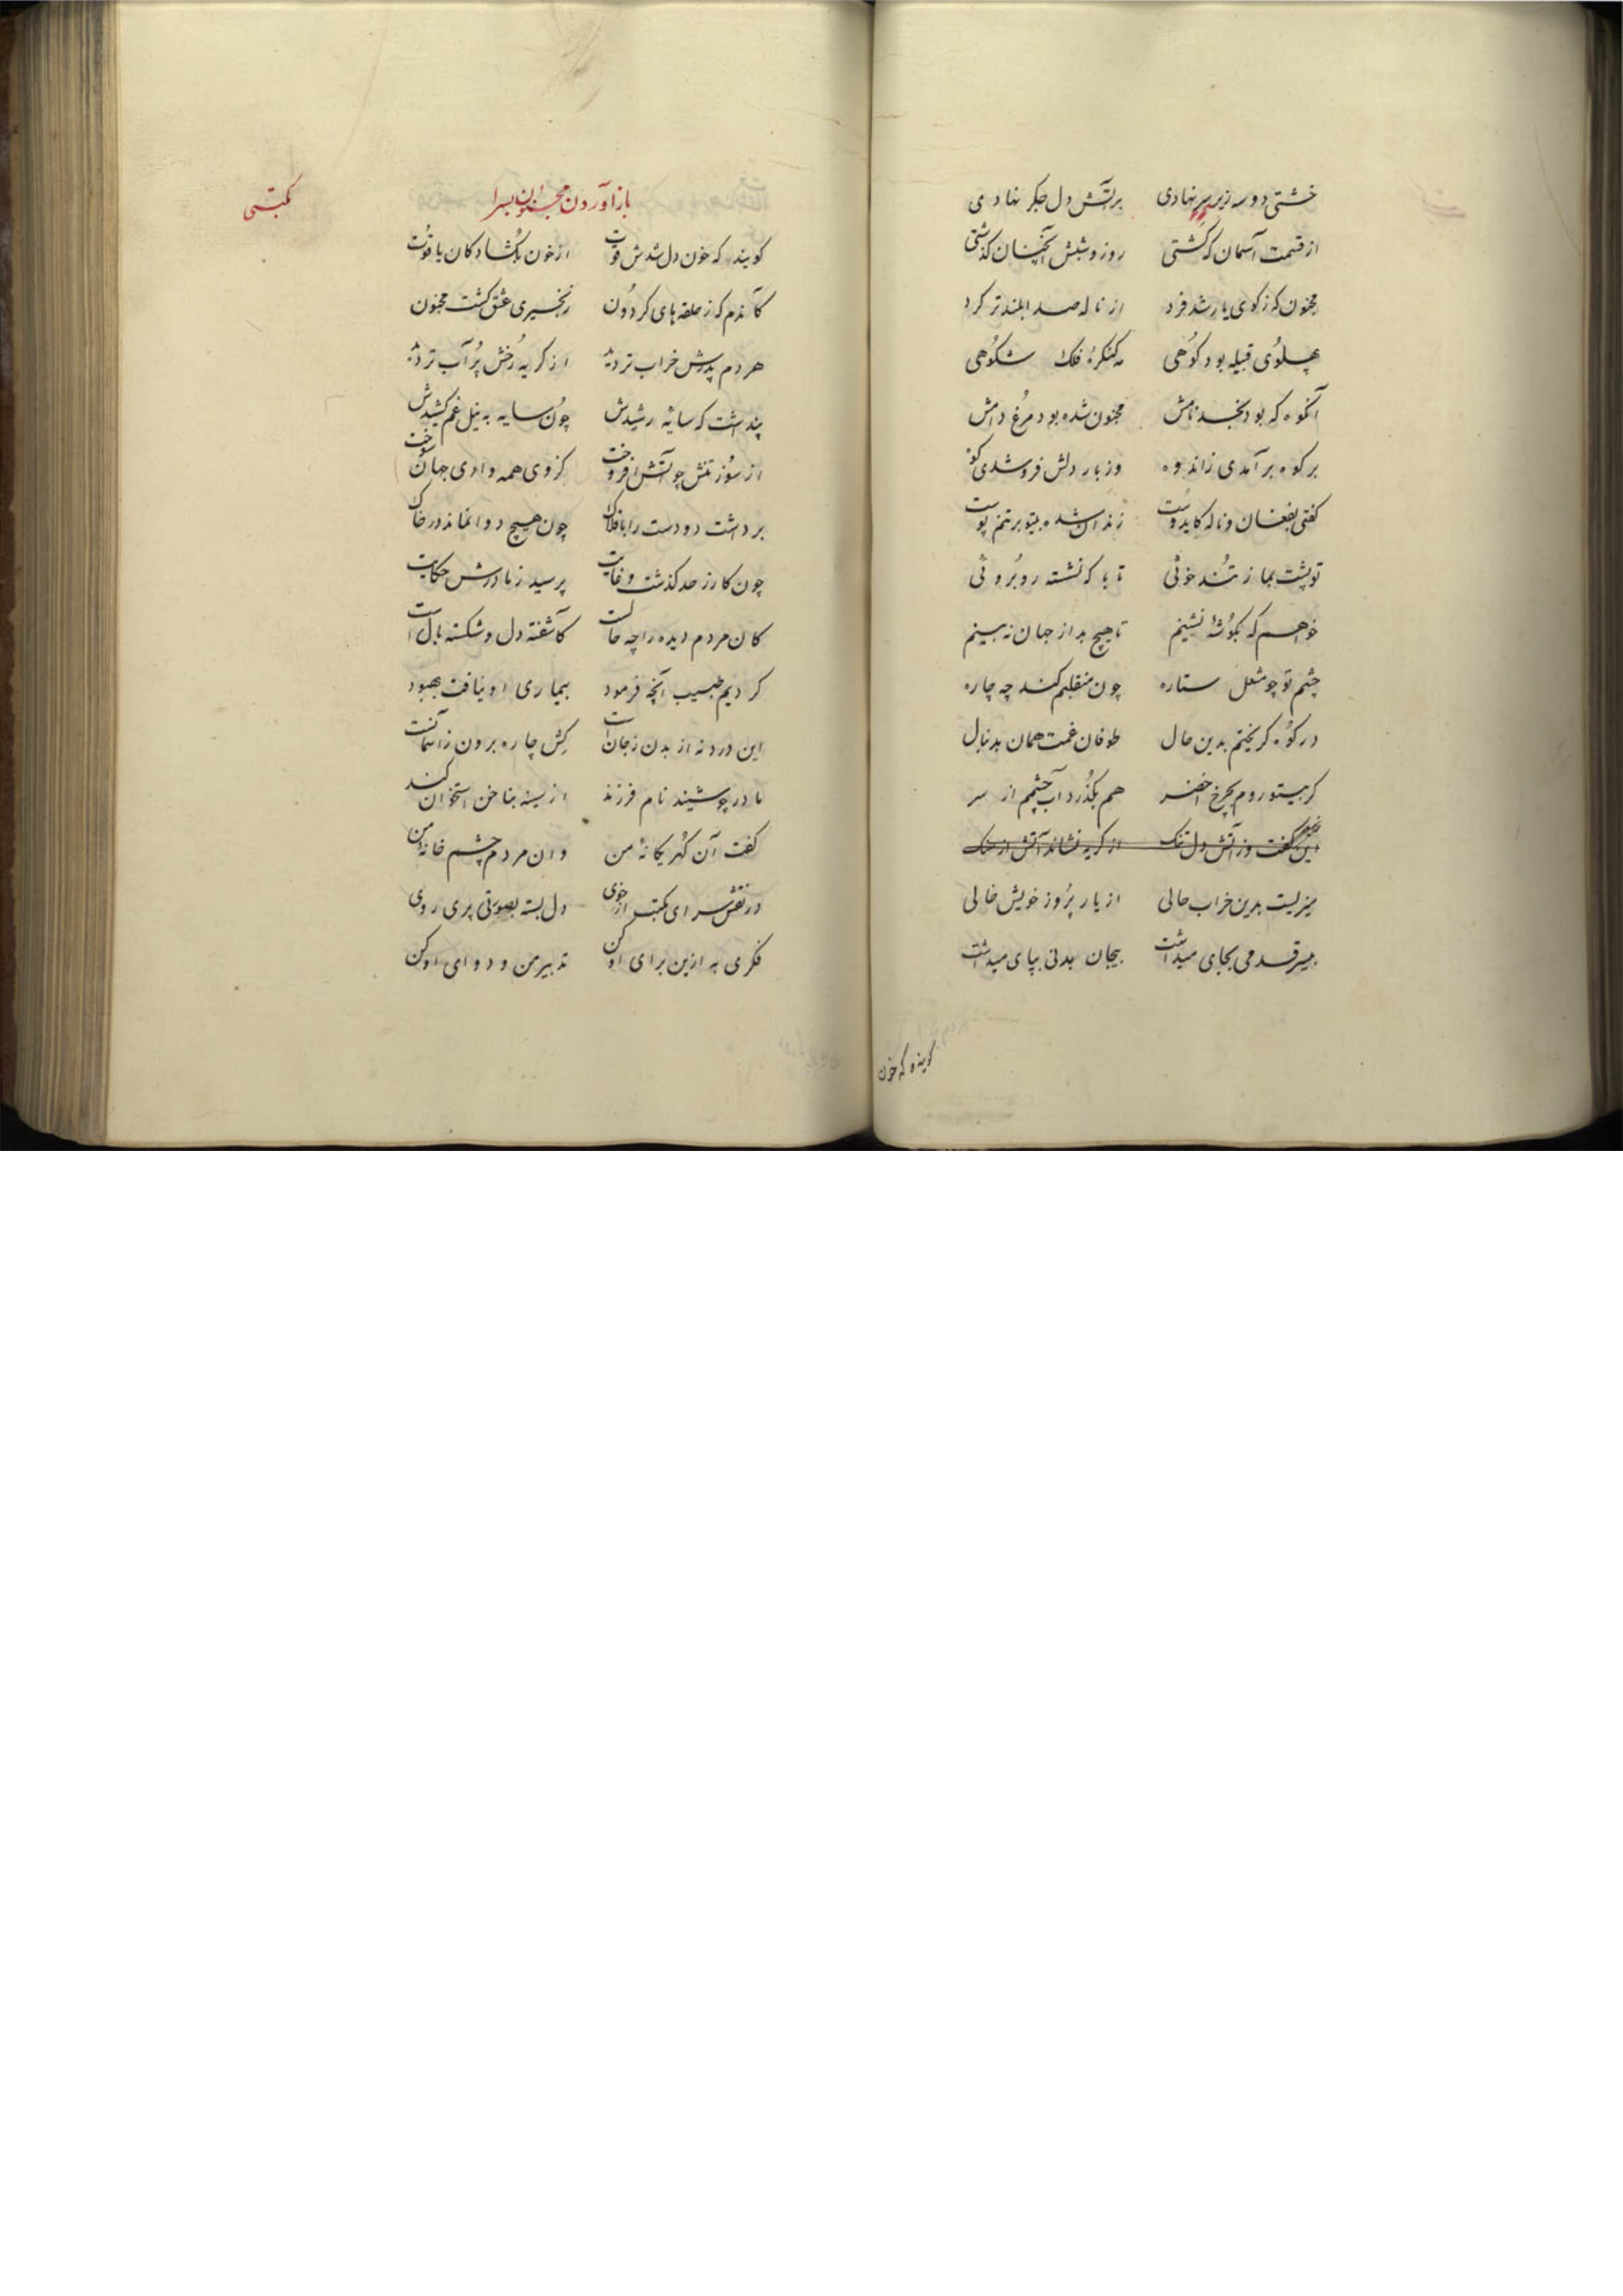 خشتی دو سه زیر سر نهادی بر آتش دل جگر نهادی
از قسمت آسمان که گشتی روز و شبش آنچنان گذشتی
مجنون که ز کوی یار شد فرد از ناله صدا بلندتر کرد
پهلوی قبیله بود کوهی مه کنکرهٔ فلک شکوهی
آنکوه که بود نجد نامش مجنون شده بود مرغ دامش
بر کوه برآمدی ز اندوه وز بار دلش فرو شدی کوه
کفتی بفغان و ناله کایدوست زندان شده بیتو بر تنم پوست
تو پشت بما ز تند خوئی تا با که نشسته روبروئی
خواهم که بکوشهٔ نشینم تا هیچ بد از جهان نه بینم
چشم تو چو شعل ستاره چون منقلبم کند چه چاره
در کوه کریختم بدین حال طوفان غمت همان بدنبال
کر بیتو روم بچرخ اخضر هم بکذرد آب چشمم از سر
این کفت وز آتش دل تنک از کریه نشاند آتش از سنک
میزیست بدین خراب حالی از یار پر و ز خویش خالی
بیسر قدمی بجای میداشت بیجان بدنی بپای میداشت
کویند که خون
مکتبی
باز آوردن مجنون بسرا
کویند که خون دل شدش قوت از خون بکشاد کان یاقوت
کآندم که ز حلقه های کردون زنجیری عشق کشت مجنون
هر دم پدرش خراب تر دید از کریه رخش پر آب تر دید
پنداشت که سایهٔ رسیدش چون سایه به نیل غم کشیدش
از سوز تنش چو آتش افروخت کز وی همه وادی جهان سوخت
برداشت دو دست را بافلاک چون هیچ دوا نماند در خاک
چون کار ز حد کذشت و غایت پرسید ز مادرش حکایت
کان مردم دیده را چه حالست کآشفته دل و شکسته بال است
کردیم طبیب آنچه فرمود بیماری او نیافت بهبود
این درد نه از بدن ز جان است کش چاره برون ز آسمانست
مادر چو شنید نام فرزند از سینه بناخن استخوان کند
کفت آن کهر یکانهٔ من وان مردم چشم خانهٔ من
در نقش سرای مکتب از خوی دل بسته بصورتی پری روی
فکری به ازین برای او کن تدبیر من و دوای او کن